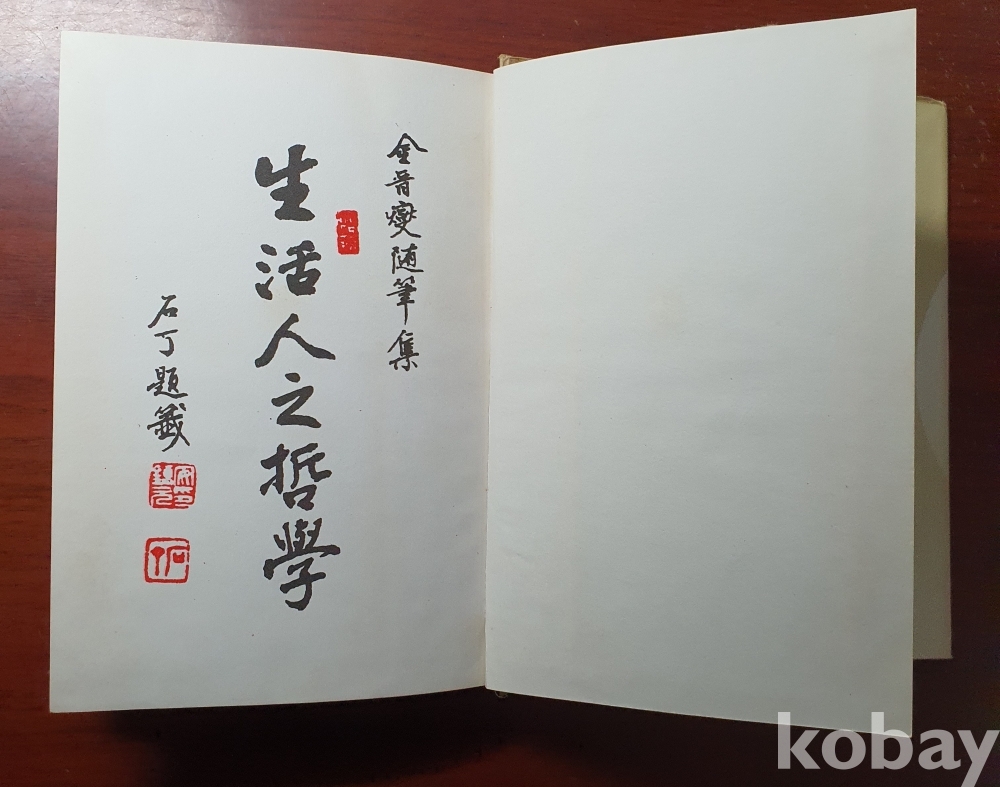 金晋燮随筆集
生活人之哲學
石丁題籤
石丁
kobay